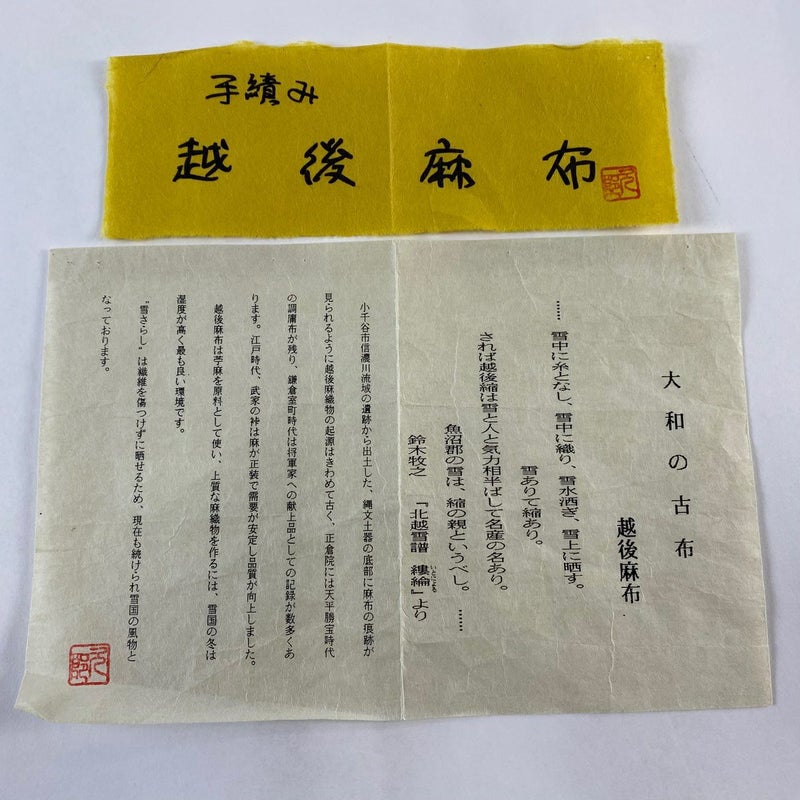 手績み
越後麻布
大和の古布
越後麻布
……雪中に糸となし、雪中に織り、雪水洒ぎ、雪上に晒す。
雪ありて縮あり。
されば越後縮は雪と人と気力相半ばして名産の名あり。
魚沼郡の雪は、縮の親というべし。……
鈴木牧之 『北越雪譜 縷綸』より
小千谷市信濃川流域の遺跡から出土した、縄文土器の底部に麻布の痕跡が
見られるように越後麻織物の起源はきわめて古く、正倉院には天平勝宝時代
の調庸布が残り、鎌倉室町時代は将軍家への献上品としての記録が数多くあ
ります。江戸時代、武家の裃は麻が正装で需要が安定し品質が向上しました。
越後麻布は苧麻を原料として使い、上質な麻織物を作るには、雪国の冬は
湿度が高く最も良い環境です。
"雪さらし"は繊維を傷つけずに晒せるため、現在も続けられ雪国の風物と
なっております。